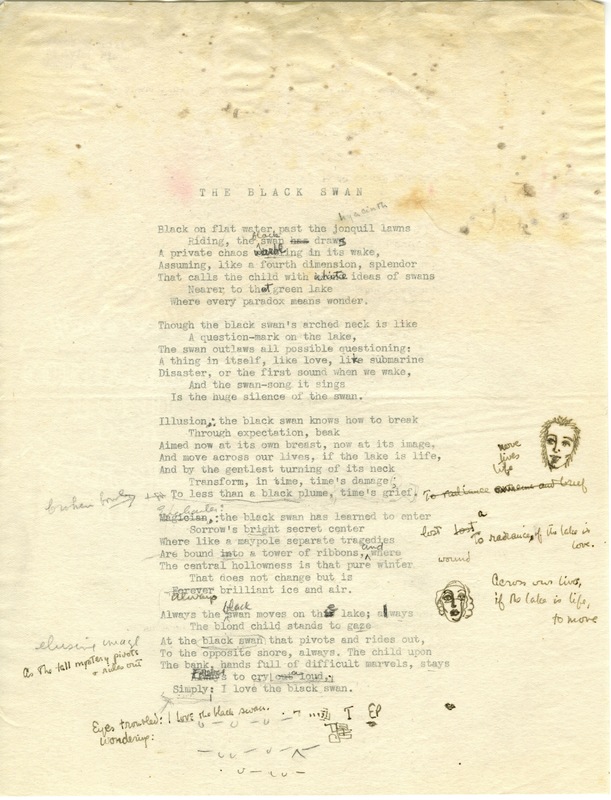 THE BLACK SWAN
hyacinth
Black on flat water past the jonquil lawns
black
Riding, the swan has draws
A private chaos warbling in its wake,
Assuming, like a fourth dimension, splendor
That calls the child with white ideas of swans
Nearer to that green lake
Where every paradox means wonder.
Though the black swan's arched neck is like
A question-mark on the lake,
The swan outlaws all possible questioning:
A thing in itself, like love, like submarine
Disaster, or the first sound when we wake,
And the swan-song it sings
Is the huge silence of the swan.
Illusion: the black swan knows how to break
Through expectation, beak
Aimed now at its own breast, now at its image,
And move across our lives, if the lake is life,
And by the gentlest turning of its neck
Transform, in time, time's damage;
To less than a black plume, time's grief.
move
lives
life
To radiance extreme and brief
broken
Enchanter:
Magician: the black swan has learned to enter
Sorrow's bright secret center
Where like a maypole separate tragedies
Are bound into a tower of ribbons, and where
The central hollowness is that pure winter
That does not change but is
Always
Forever brilliant ice and air.
lost lost a
To radiance, if the lake is
love.
wound
Across our lives,
if the lake is life,
to move
black
Always the swan moves on the lake; always
The blond child stands to gaze
At the black swan that pivots and rides out,
To the opposite shore, always. The child upon
The bank, hands full of difficult marvels, stays
to cry aloud,
Simply: I love the black swan.
elusive image
As the tall mystery pivots
& rides out
Eyes troubled: I love the black swan.
Wondering:
T EP